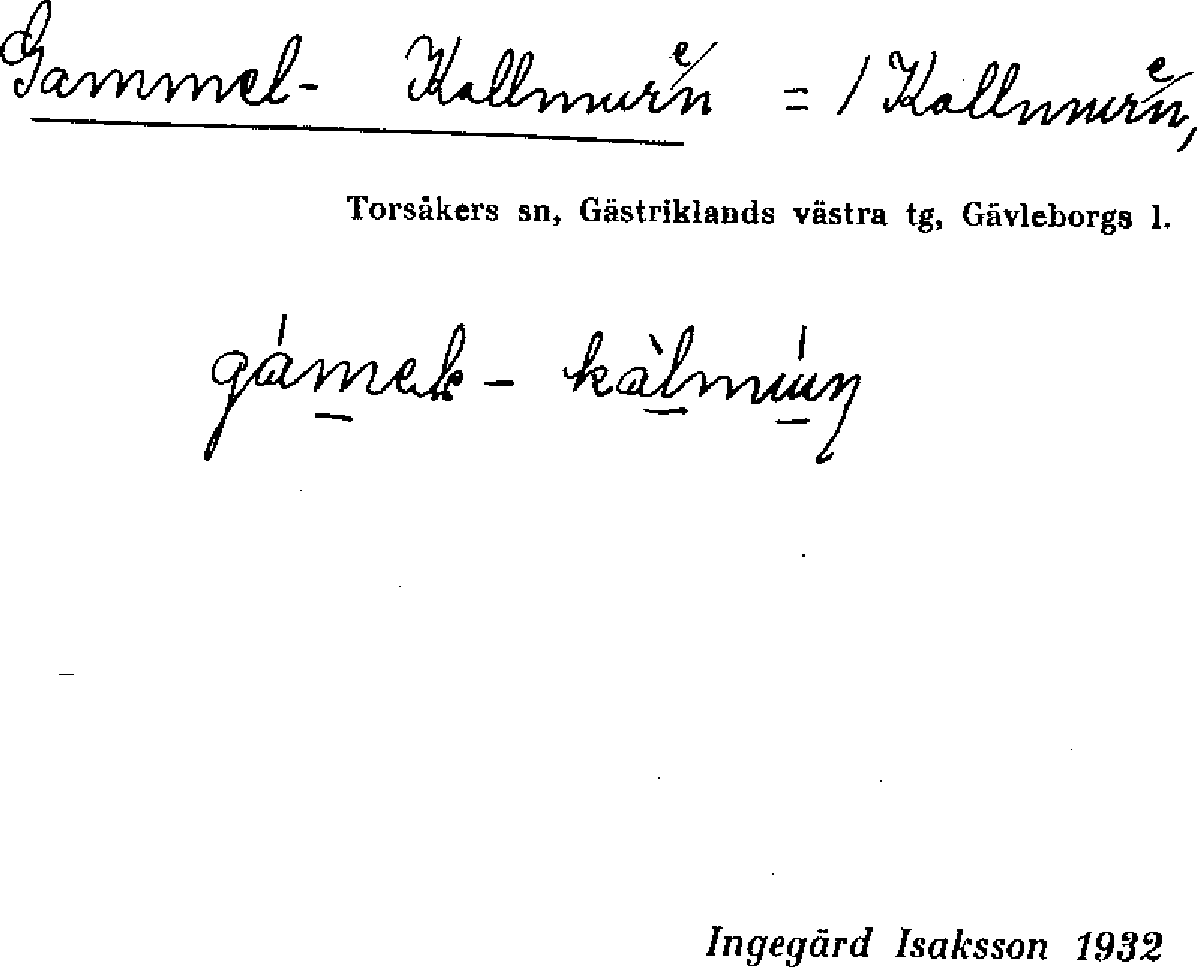 Gammel- Kallmuren = / Kallmuren,
Torsåkers sn, Gästriklands västra tg, Gävleborgs l.
gámek - kàlmúuṇ
Ingegärd Isaksson 1932